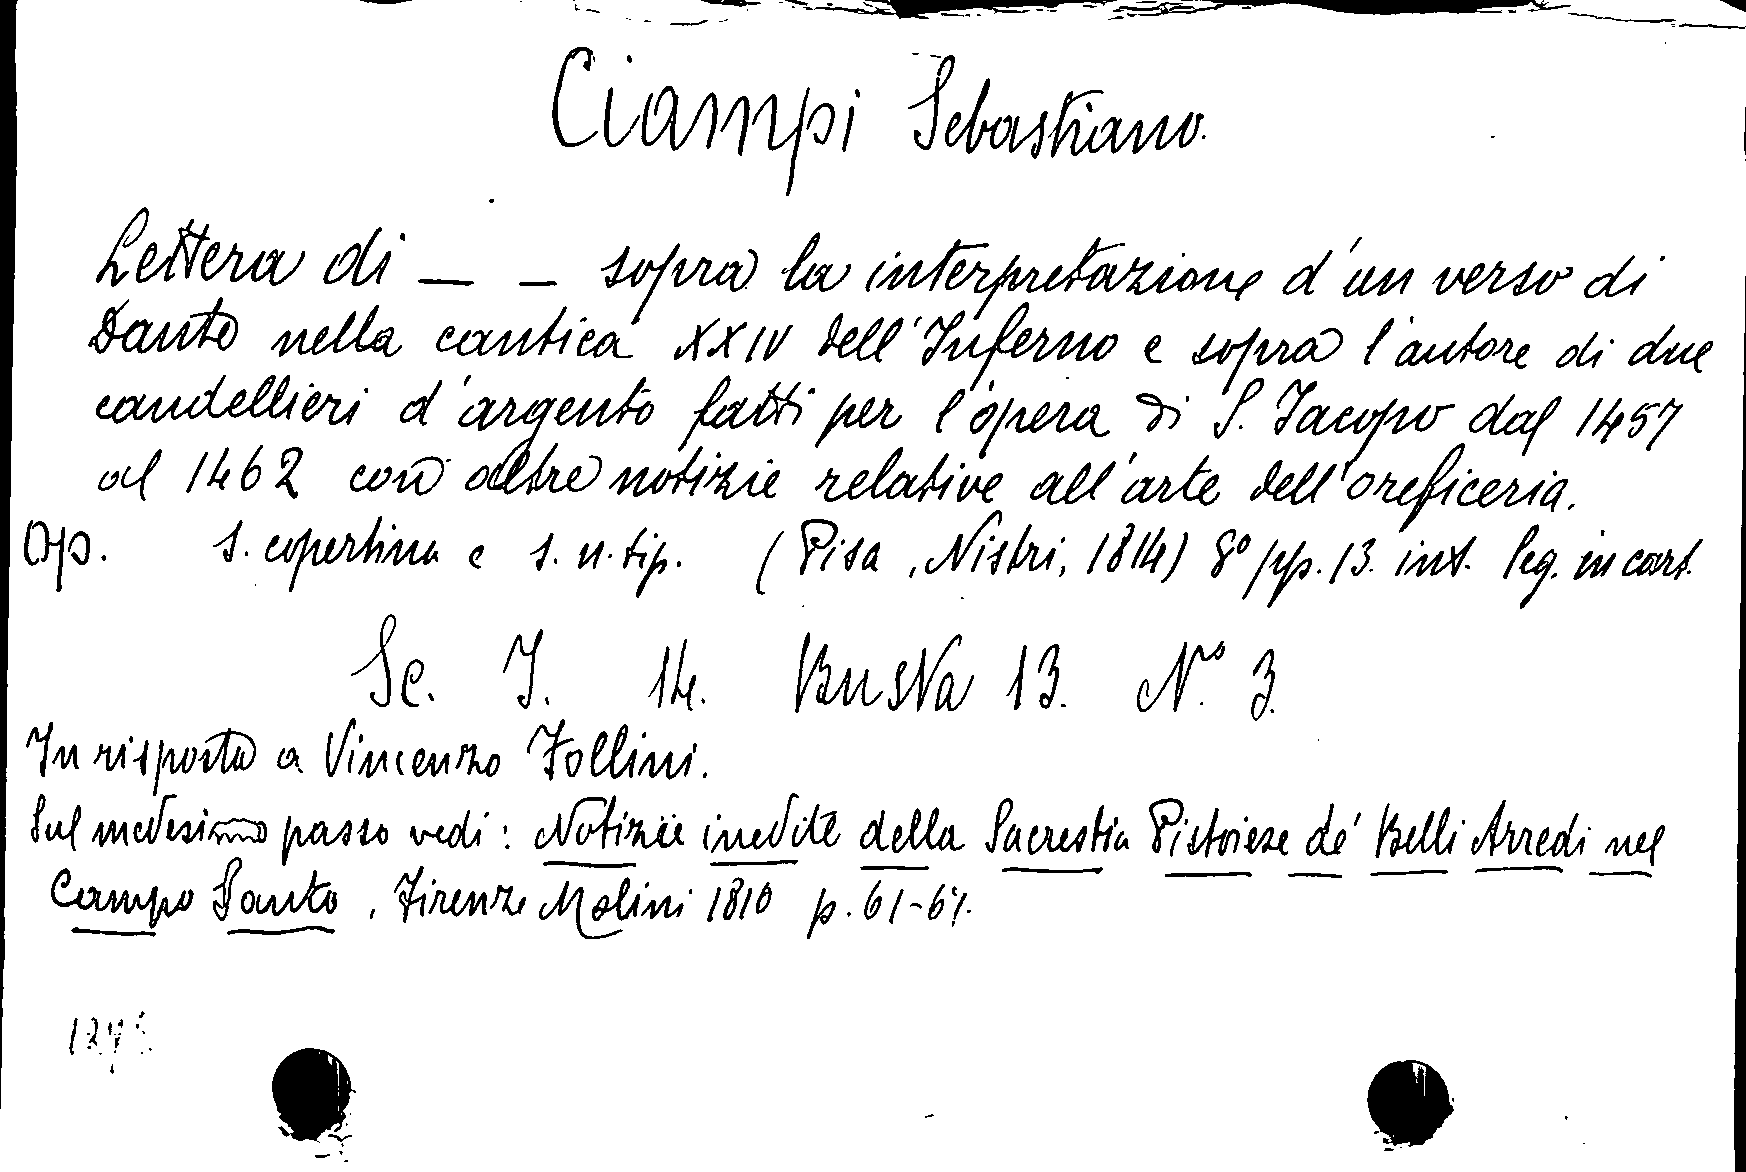 Ciampi Sebastiano.
Lettera di _ _ sopra la interpretazione d'un verso di
Dante nella cantica XXIV dell'Inferno e sopra l'autore di due
candellieri d'argento fatti per l'opera di S. Jacopo dal 1457
al 1462 con altre notizie relative all'arte dell'oreficeria.
Op. s. copertina e s. n. tip. (Pisa, Nistri, 1814) 8º pp. 13. int. leg. in cart.
Sc. I. 14. Busta 13. Nº 3.
In risposta a Vincenzo Follini.
Sul medesimo passo vedi: Notizie inedite della Sacrestia Pistoiese de' Belli Arredi nel
Campo Santo, Firenze Molini 1810 p. 61-